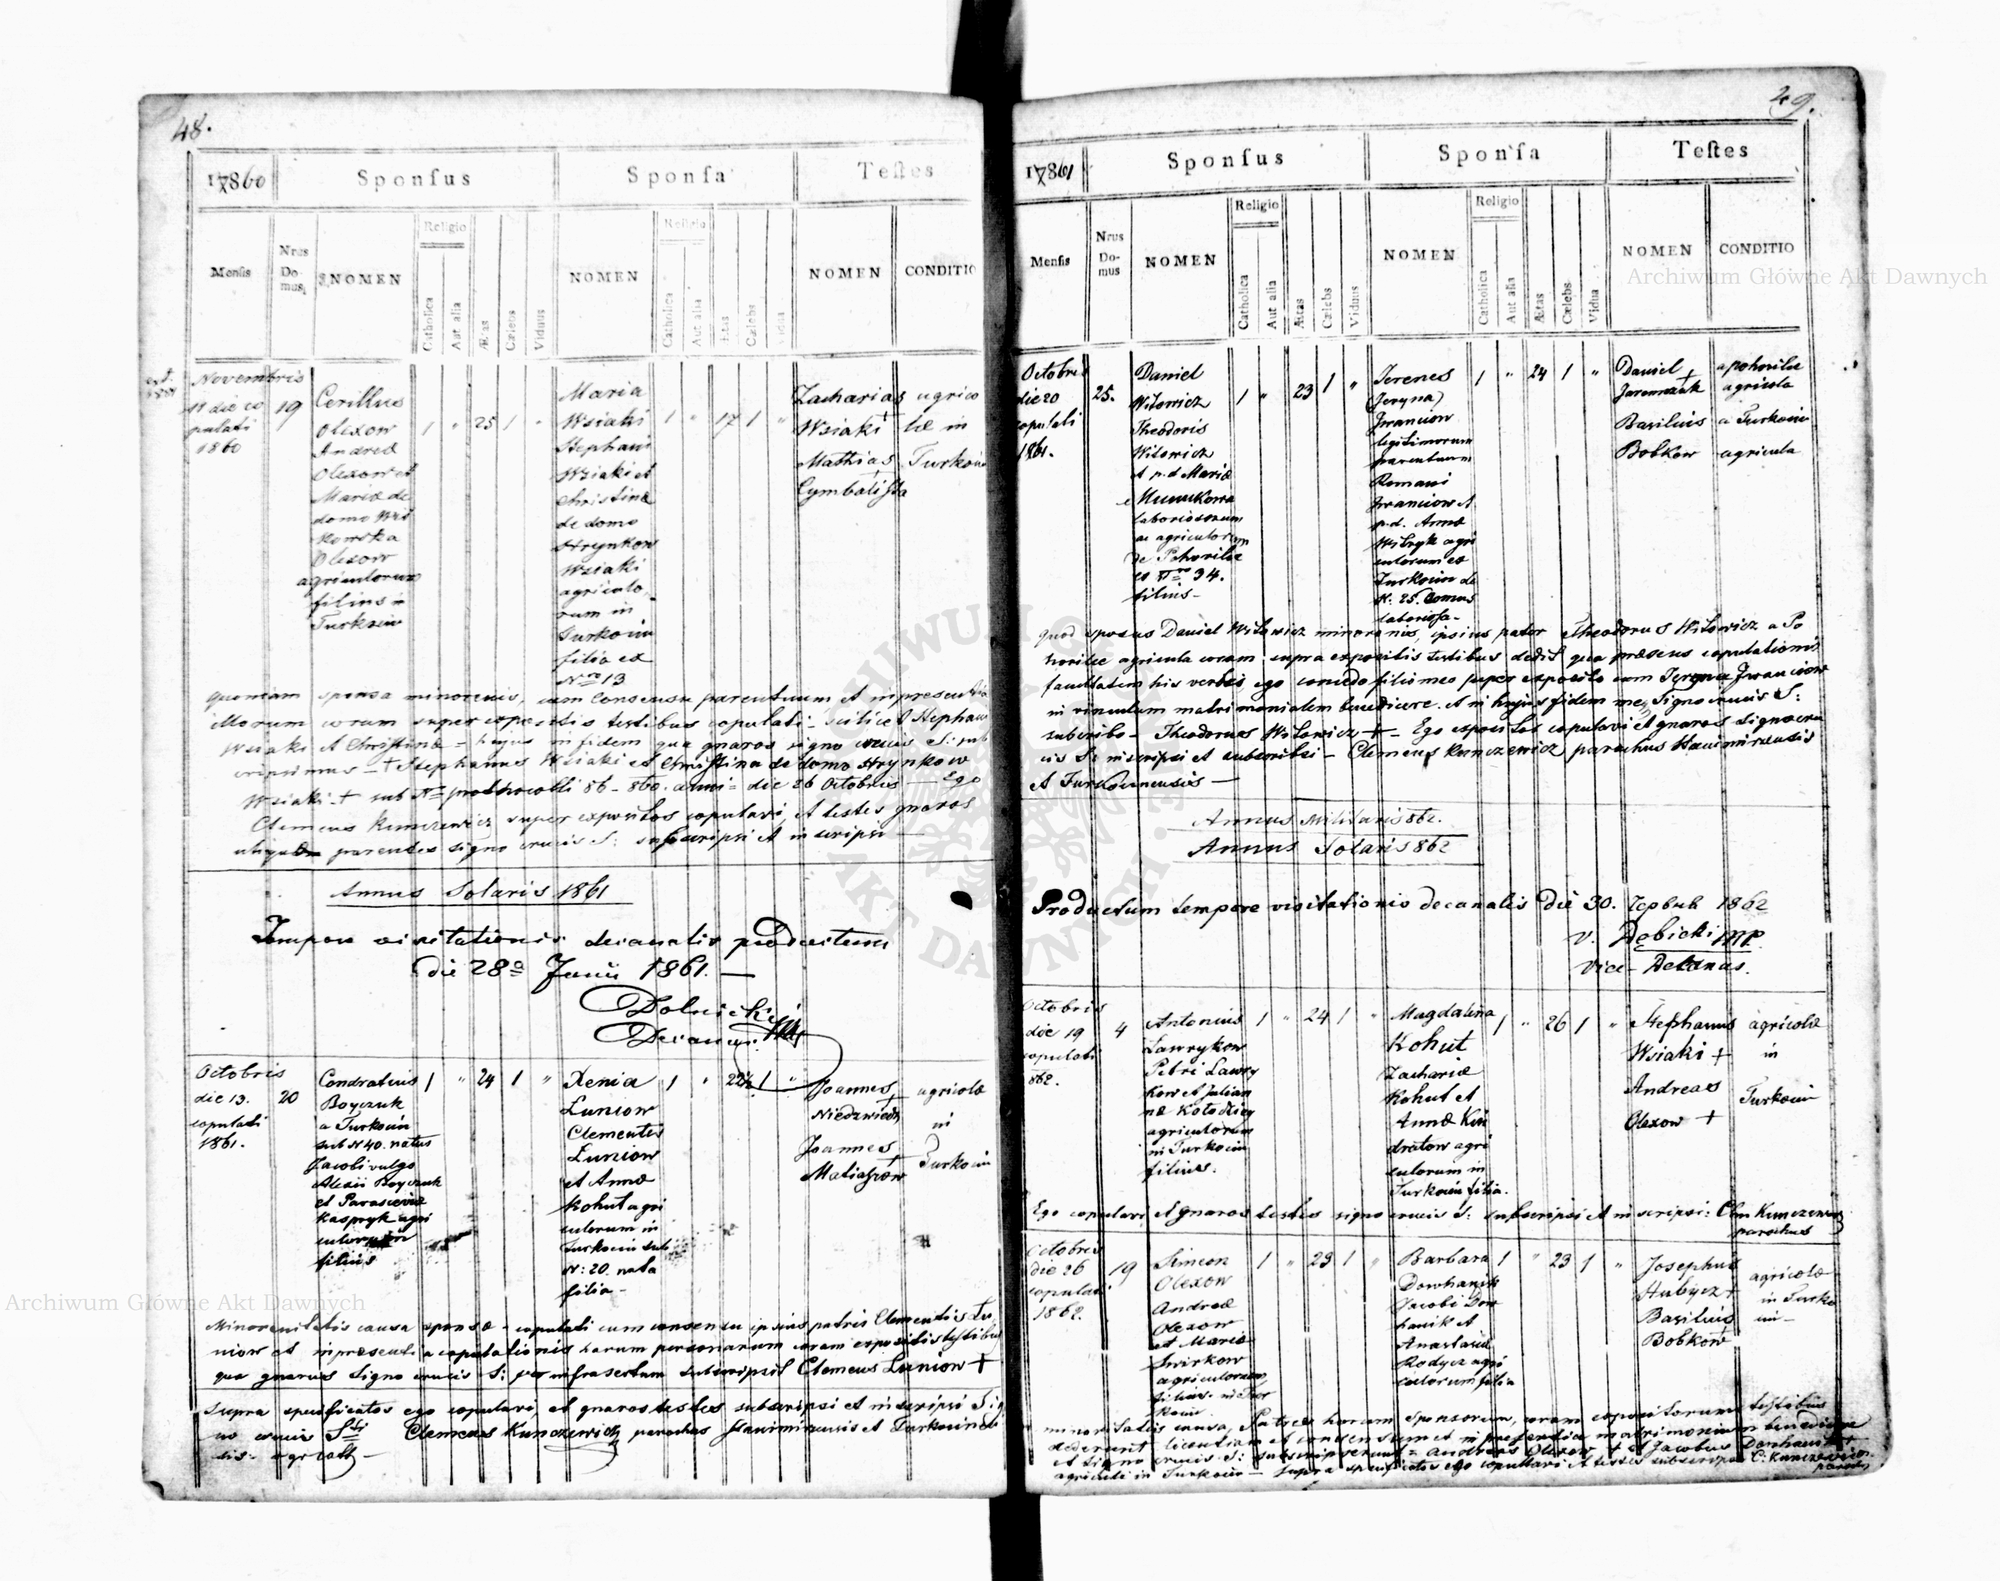 48.
17860
Sponſus
Sponſa
Teſtes
Menſis
Nrus
Do-
mus
NOMEN
Religio
Catholica
Aut alia
Ætas
Cælebs
Viduus
NOMEN
Religio
Catholica
Aut alia
Ætas
Cælebs
Vidua
NOMEN
CONDITIO
Novembris
11 die co
pulati
1860
19
Cerillus
Olexow
Andreæ
Olexow et
Mariæ de
domo
Olexow
agricultorum
filius in
Turkocin
1 " 25 1 "
Maria
Wsiaki
Stephani
Wsiaki et
Christinæ
de domo
Hrynkow
Wsiaki
agricolo
rum in
Turkocin
filia ex
Nro 13
1 " 17 1 "
Zacharias
Wsiaki +
Mathias
Cymbalista
agrico
læ in
Turkocin
quoniam sponsa minorenis, cum consensu parentum et in presentia
illorum coram super expositis testibus copulati scilicet Stephani
Wsiaki et Christinæ – hujus in fidem qua gnaros signo crucis S: sub
scripsimus – + Stephanus Wsiaki et Christina de domo Hrynkow
Wsiaki + sub Nro prothocolli 86 – 860. anni = die 26 Octobris – Ego
Clemens Kunczewicz super expositos copulavi, et testes gnaros
parentes signo crucis S: subscripsi et inscripsi –
Annus Solaris 1861
Tempore visitationis decanalis productum
die 28a Junii 1861. —
Dolnicki
Decanus
Octobris
die 13.
copulati
1861.
20
Condratius
Boyczuk
a Turkocin
sub N 40. natus
Jacobi vulgo
Alexii Boyczuk
et Parasceviæ
Kaspryk agri
cultorum
filius
1 " 24 1 "
Xenia
Luniow
Clementis
Luniow
et Annæ
Kohut agri
cultorum in
Turkocin sub
N: 20. nata
filia –
1 " 22½ 1 "
Joannes +
Niedzwiedz
Joannes +
Matiaszow
agricolæ
in
Turkocin
Minorenitatis causa sponsæ – copulati cum consensu ipsius patris Clementis Lu
niow et in presentia copulationis harum personarum coram expositis testibus
qua gnarus signo crucis S: per infrasertum subscripsit Clemens Luniow +
Supra specificatos ego copulavi, et gnaros testes subscripsi et inscripsi Sig
no crucis Sti Clemens Kunczewicz parochus Hanimirensis et Turkocinen
sis.
49.
17861
Sponſus
Sponſa
Teſtes
Menſis
Nrus
Do-
mus
NOMEN
Religio
Catholica
Aut alia
Ætas
Cælebs
Viduus
NOMEN
Religio
Catholica
Aut alia
Ætas
Cælebs
Vidua
NOMEN
CONDITIO
Octobris
die 20
copulati
1861.
25.
Daniel
Witowicz
Theodoris
Witowicz
et p. d. Mariæ
laboriosorum
ac agricultorum
de Pohorilce
ex Nro 34.
filius –
1 " 23 1 "
Jerenes
(Jeryna)
Iwanciow
legitimorum
parentum
Romani
Iwanciow et
p. d. Annæ
Witryk agri
cultorum ex
Turkocin de
N: 25. Domus
laboriosa –
1 " 24 1 "
Daniel +
Jaremczak
Basilius
Bobkow
a pohorilce
agricola
a Turkocin
agricola
quod sposus Daniel Witowicz minorenis, ipsius pater Theodorus Witowicz a Po
horilce agricula coram supra expositis testibus dedit qua præsens copulationis
facultatem his verbis ego concedo filio meo super exposito cum Jeryna Iwanciow
in vinculum matrimonialem benedicere. et in hujus fidem me, signo crucis S:
subscribo – Theodorus Witowicz + – Ego expositos copulavi et gnaros signo cru
cis S: inscripsi et subscribsi – Clemens Kunczewicz parochus Hanimirensis
et Turkocinensis —
Annus Militaris 862.
Annus Solaris 862
Productum tempore visitationis decanalis die 30. Червня 1862
v. Dębicki mp.
Vice-Decanus.
Octobris
die 19
copulati
862.
4
Antonius
Lawrykow
Petri Lawry
kow et Julian
næ Kołodziey
agricultorum
in Turkocin
filius.
1 " 24 1 "
Magdalena
Kohut
Zachariæ
Kohut et
Annæ Kin
dratow agri
cultorum in
Turkocin filia.
1 " 26 1 "
Stephanus
Wsiaki +
Andreas
Olexow +
agricolæ
in
Turkocin
Ego copulavi, et gnaros testes signo crucis S: subscripsi et inscripsi: Clem Kunczewicz
parochus
Octobris
die 26
copulati
1862.
19
Simeon
Olexow
Andreæ
Olexow
et Mariæ
Swirkow
agricultorum
filius in Tur
kocin
1 " 23 1 "
Barbara
Dowhanik
Jacobi Dow
hanik et
Anastasiæ
Rodycz agri
cultorum filia
1 " 23 1 "
Josephus
Hubycz +
Basilius
Bobkow
agricolæ
in Turko
cin –
minoritatis causa, Patres harum sponsorum, coram expositorum testibus
dederunt licentiam et consensum et in presentia matrimonium benedicere
et signo crucis S: subscripserunt = Andreas Olexow + et Jacobus Dowhanik +
agricoli in Turkocin – supra specificatos ego copulavi et testes subscripsi C: Kunczewicz
parochus
Archiwum Główne Akt Dawnych
Archiwum Główne Akt Dawnych
ARCHIWUM GŁÓWNE AKT DAWNYCH